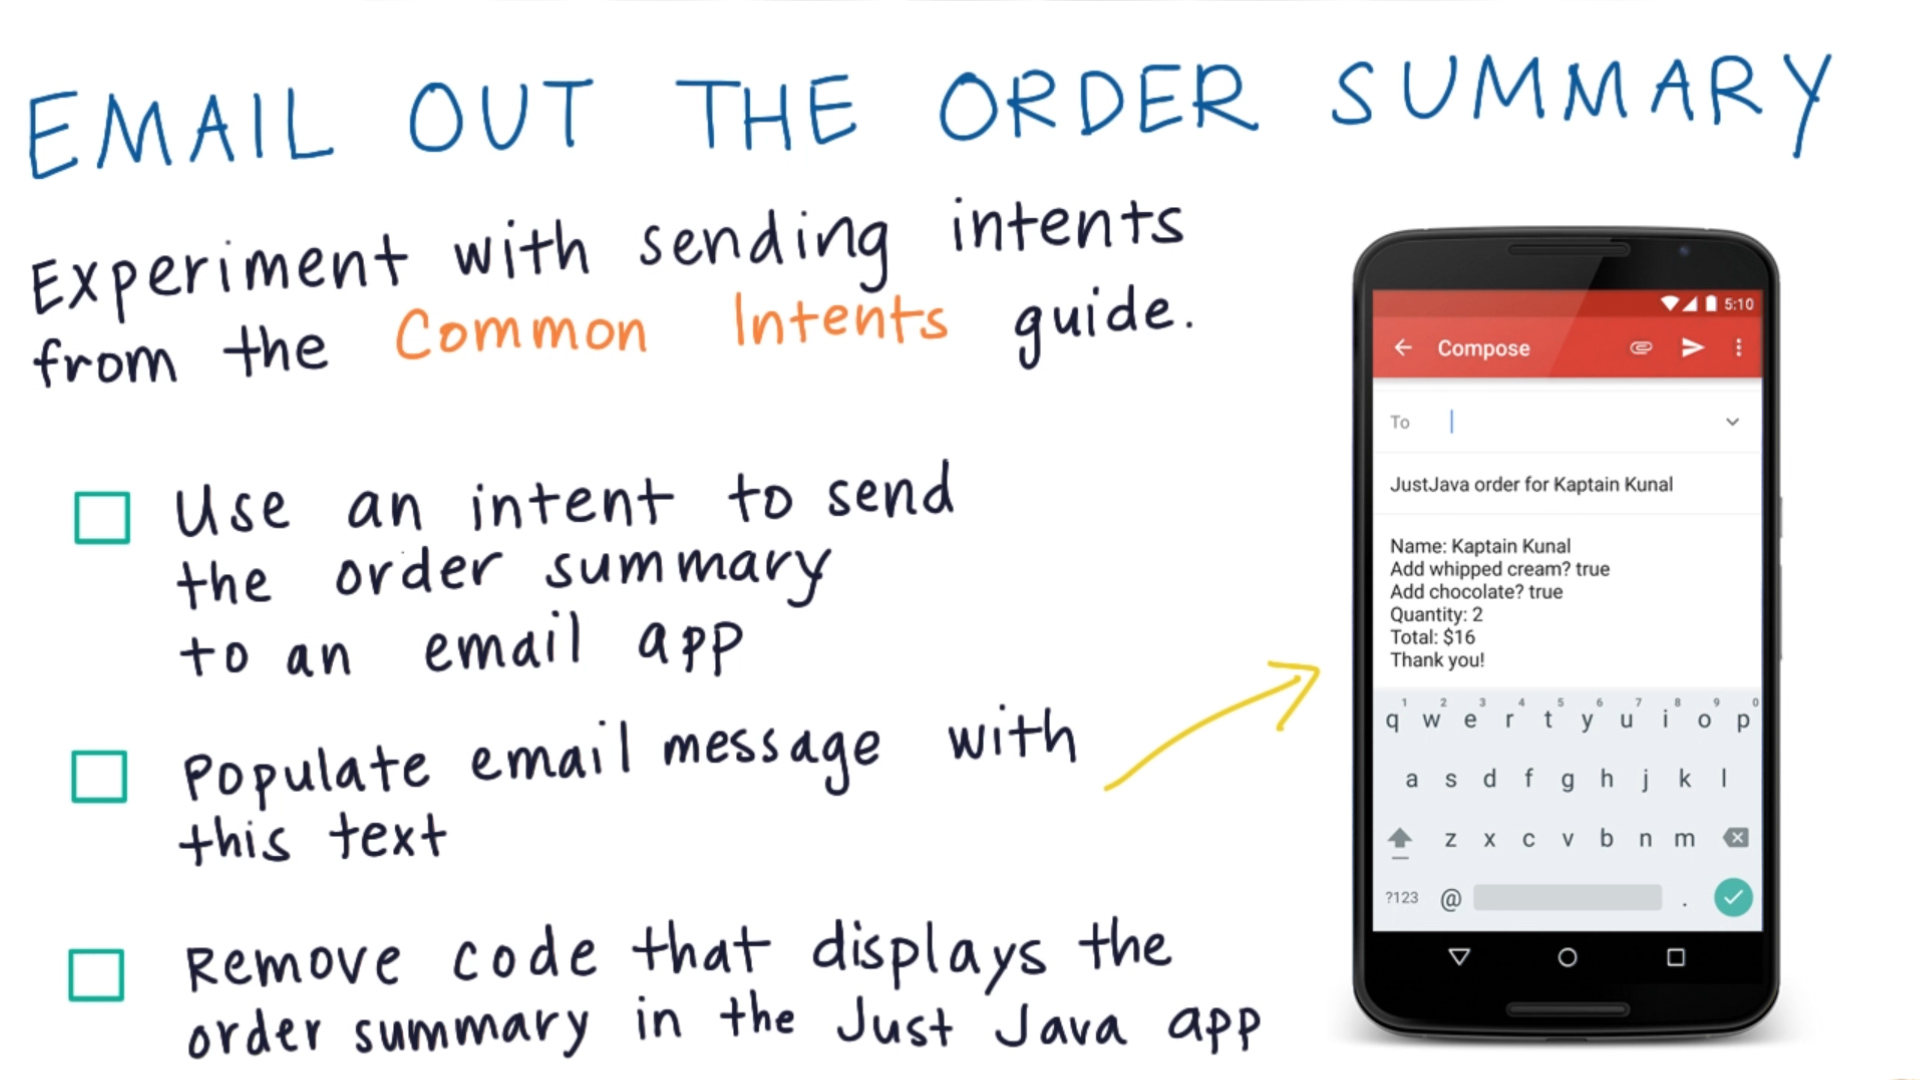 EMAIL OUT THE ORDER SUMMARY
Experiment with sending intents
from the Common Intents guide.
Use an intent to send
the order summary
to an email app
Populate email message with
this text
Remove code that displays the
order summary in the Just Java app
5:10
Compose
To
JustJava order for Kaptain Kunal
Name: Kaptain Kunal
Add whipped cream? true
Add chocolate? true
Quantity: 2
Total: $16
Thank you!
1 2 3 4 5 6 7 8 9 0
q w e r t y u i o p
a s d f g h j k l
z x c v b n m
?123 @ .